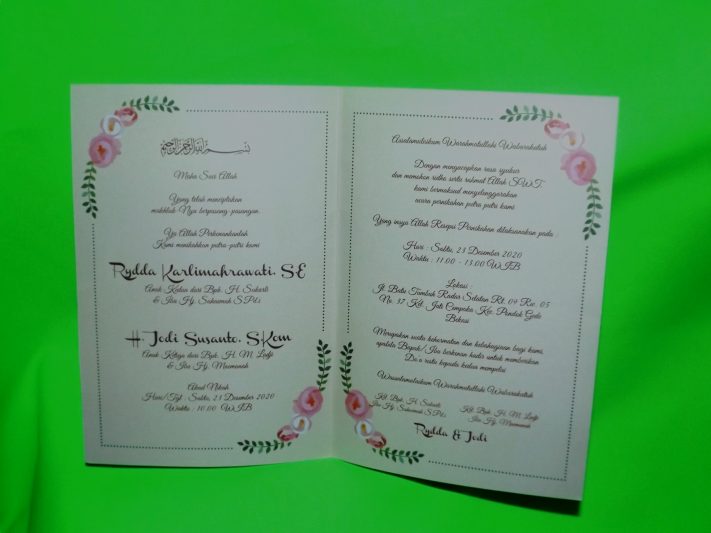 بسم الله الرحمن الرحيم
Maha Suci Allah
Yang telah menciptakan
makhluk-Nya berpasang-pasangan
Ya Allah Perkenankanlah
Kami menikahkan putra-putri kami
Rydda Karlimahrawati, S.E
Anak Kedua dari Bpk. H. Sukarti
& Ibu Hj. Sukaemah S.Pd.i
H. Jodi Susanto, S.Kom
Anak Ketiga dari Bpk. H. M. Ladji
& Ibu Hj. Maemanah
Akad Nikah
Hari/Tgl : Sabtu, 23 Desember 2020
Waktu : 10.00 WIB
Assalamualaikum Warahmatullahi Wabarakatuh
Dengan mengucapkan rasa syukur
dan memohon ridho serta rahmat Allah SWT.
kami bermaksud menyelenggarakan
acara pernikahan putra putri kami
Yang insya Allah Resepsi Pernikahan dilaksanakan pada
Hari : Sabtu, 23 Desember 2020
Waktu : 11.00 - 13.00 WIB
Lokasi :
Jl. Batu Tumbuk Radar Selatan Rt. 04 Rw. 05
No. 37 Kel. Jati Cempaka Kec. Pondok Gede
Bekasi
Merupakan suatu kehormatan dan kebahagiaan bagi kami,
apabila Bapak/Ibu berkenan hadir untuk memberikan
Do'a restu kepada kedua mempelai
Wassalamualaikum Warahmatullahi Wabarakatuh
Kel. Bpk. H. Sukarti
Ibu Hj. Sukaemah S.Pd.i
Kel. Bpk. H. M. Ladji
Ibu Hj. Maemanah
Rydda & Jodi